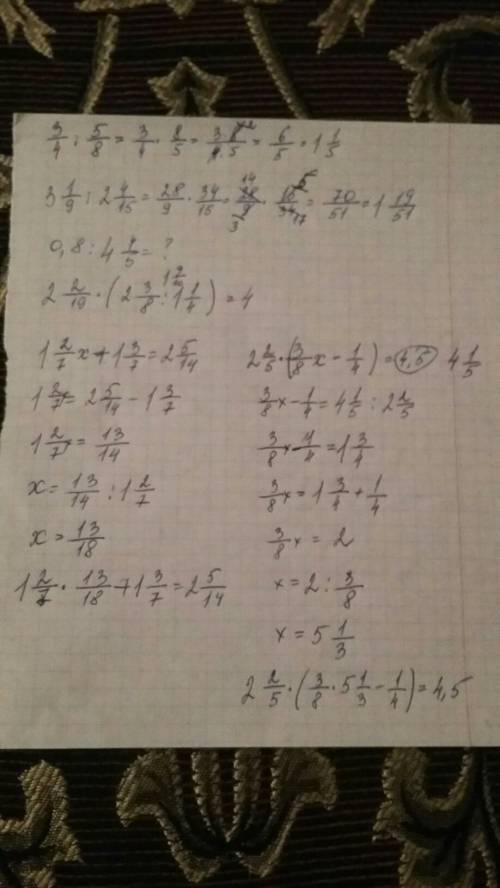 3/4 : 5/8 = 3/4 · 8/5 = 3·8 2/4·5 = 6/5 = 1 1/5
3 1/9 : 2 4/15 = 28/9 · 34/15 = 14 28/9 3 · 15 5/34 17 = 70/51 = 1 19/51
0,8 : 4 4/5 = ?
2 2/19 · (2 3/8 : 1 1/4) = 4
1 2/7 x + 1 3/7 = 2 5/14
1 2/7 x = 2 5/14 - 1 3/7
1 2/7 x = 13/14
x = 13/14 : 1 2/7
x = 13/18
1 2/7 · 13/18 + 1 3/7 = 2 5/14
2 2/5 · (3/8 x - 1/4) = 4,5 4 1/5
3/8 x - 1/4 = 4 1/5 : 2 2/5
3/8 x - 1/4 = 1 3/4
3/8 x = 1 3/4 + 1/4
3/8 x = 2
x = 2 : 3/8
x = 5 1/3
2 2/5 · (3/8 · 5 1/3 - 1/4) = 4,5